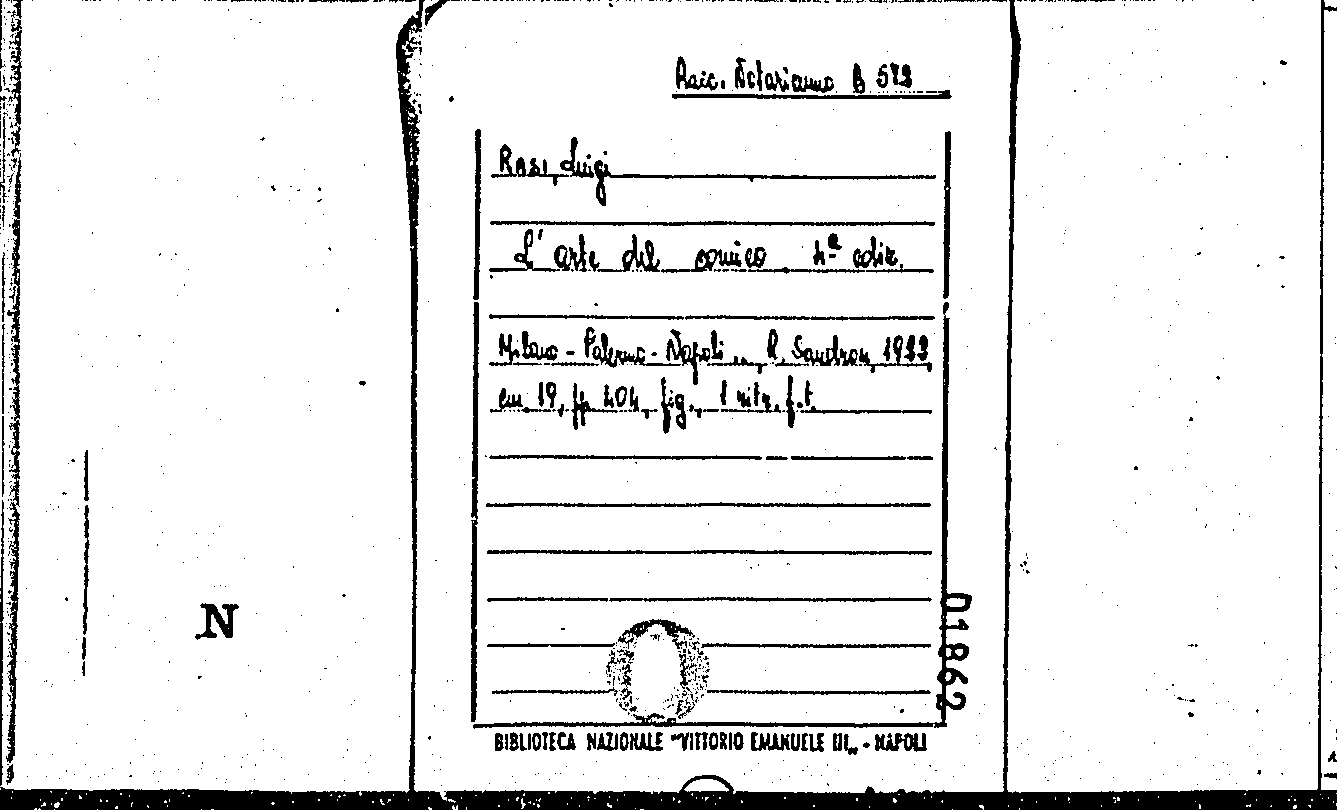 Racc. Notarianno B 572
RASI, Luigi
L'arte del comico. 4ª ediz.
Milano - Palermo - Napoli .., R. Sandron, 1923
cm. 19, pp. 404, fig., 1 ritr. f.t.
N
01862
BIBLIOTECA NAZIONALE "VITTORIO EMANUELE III„ - NAPOLI